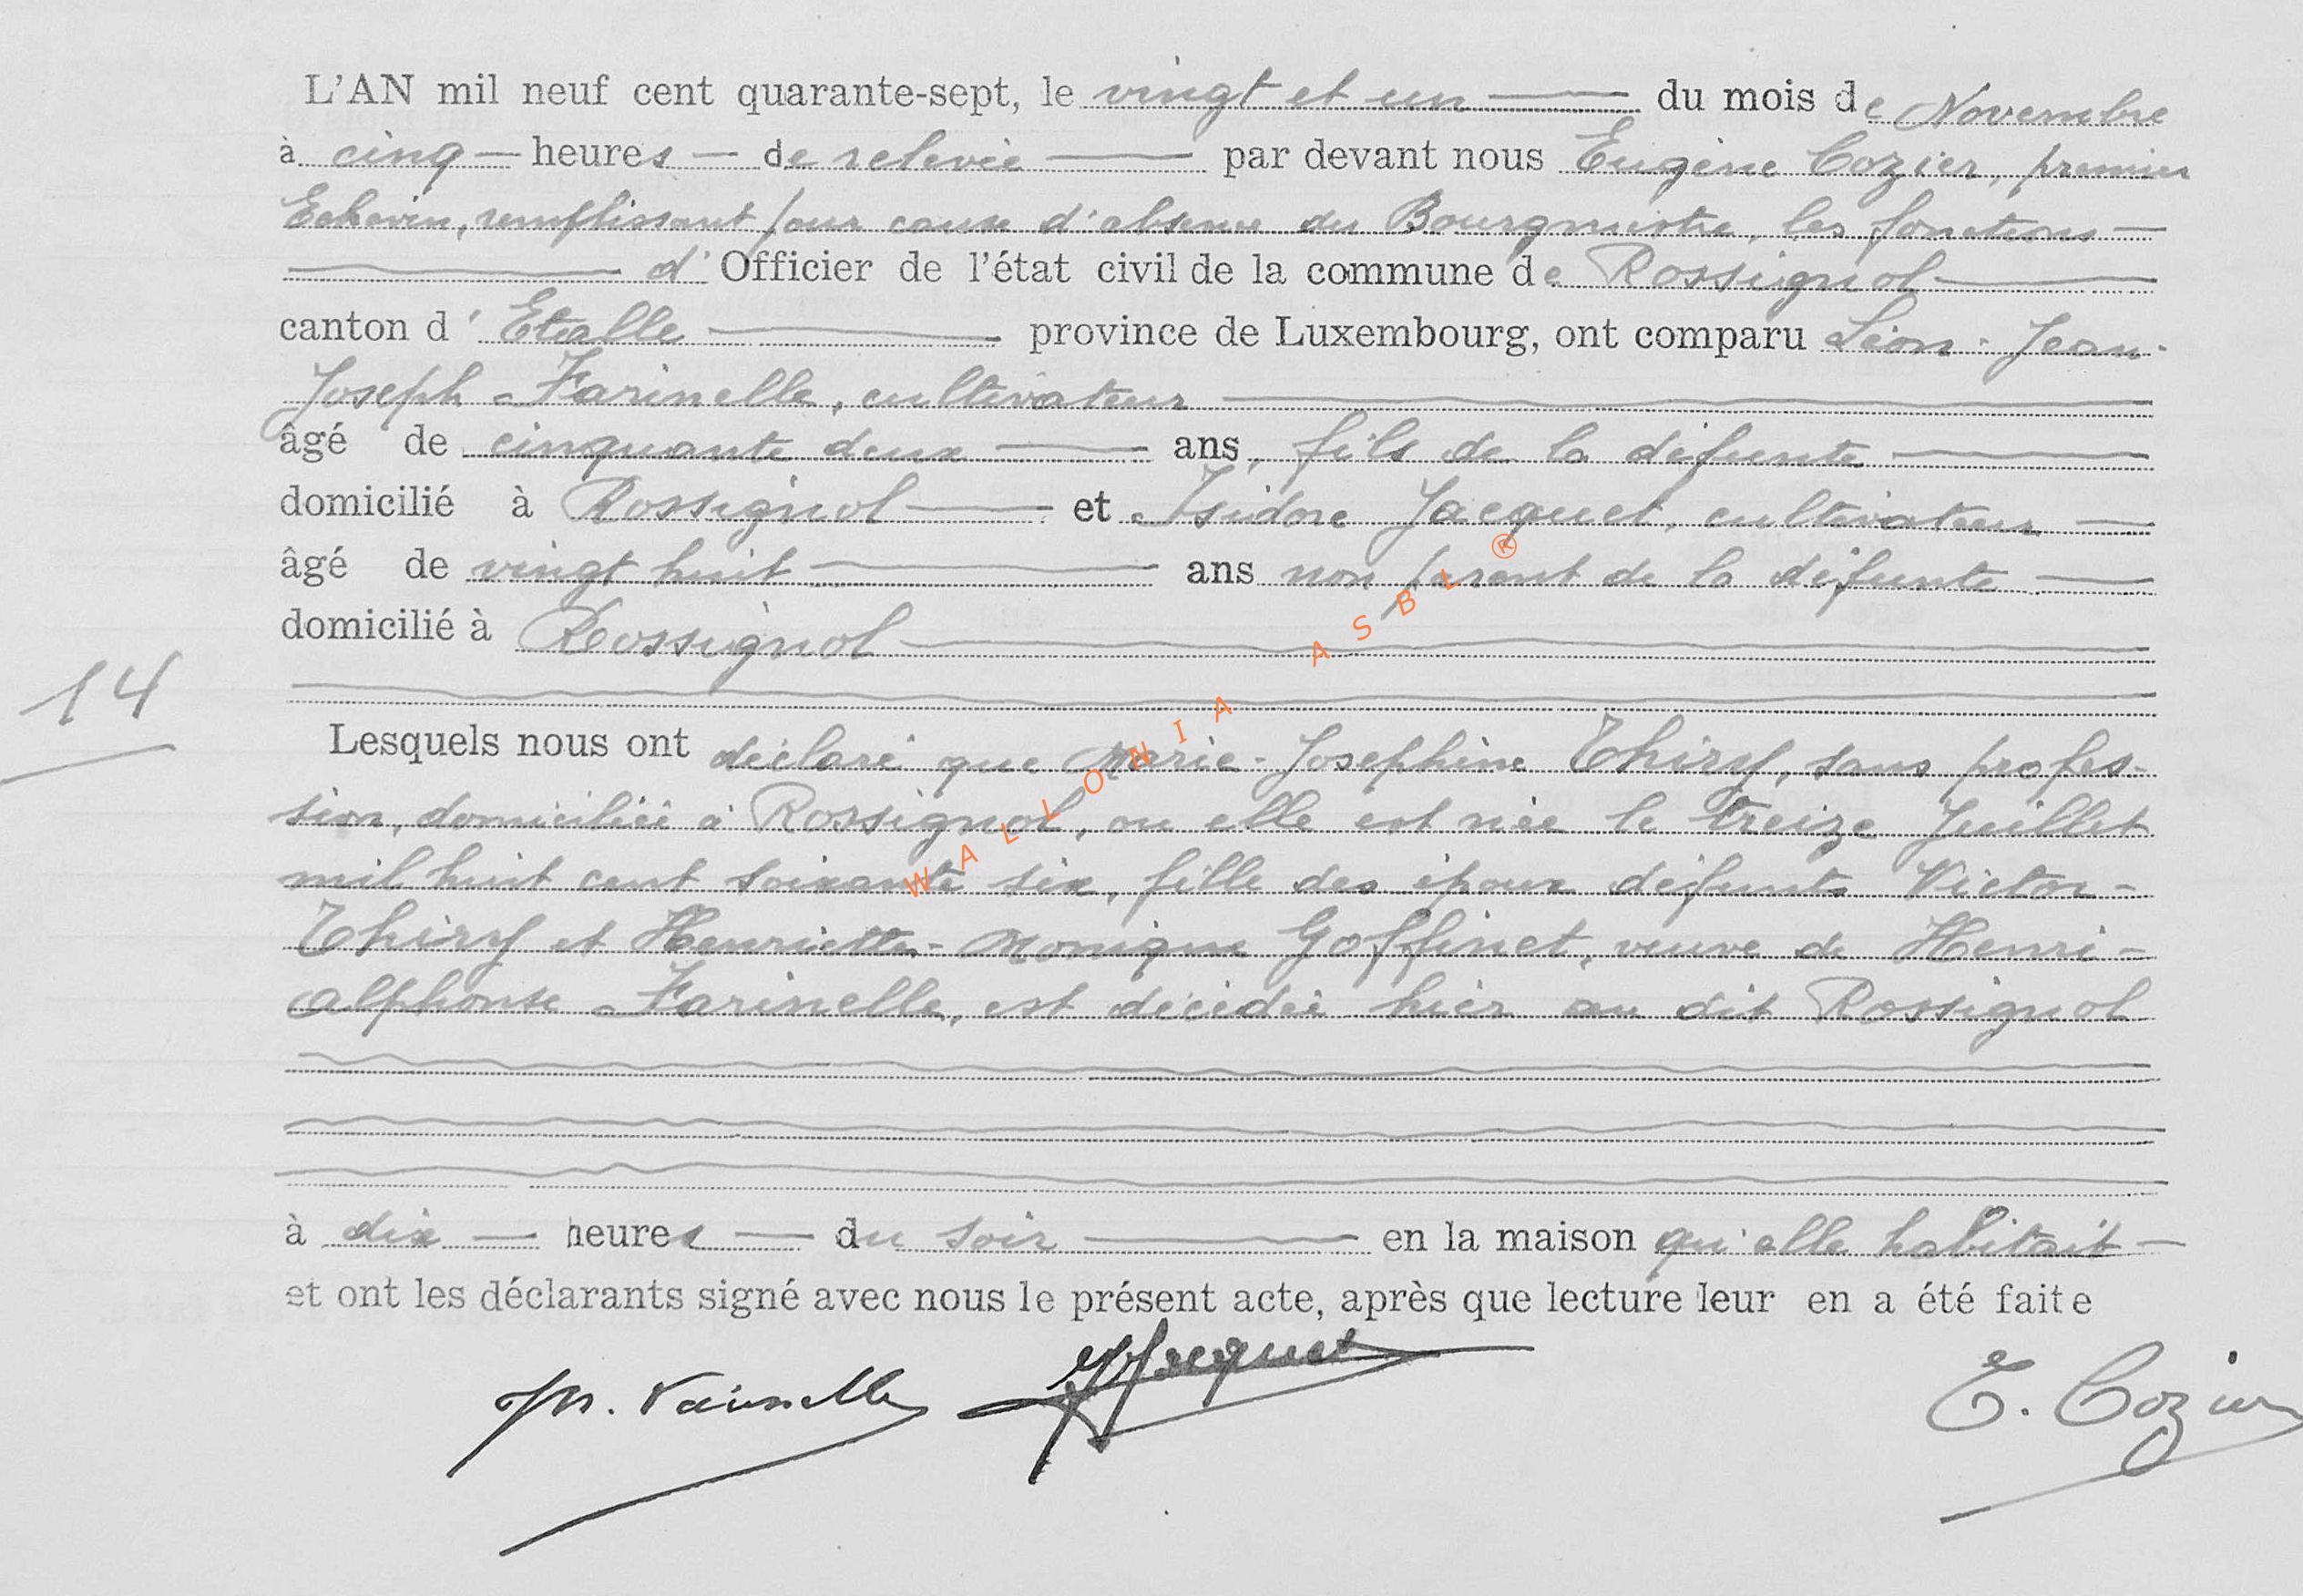 L'AN mil neuf cent quarante-sept, le vingt et un du mois de Novembre
à cinq heures de relevée par devant nous Eugène Cozier, premier
Echevin, remplissant pour cause d'absence du Bourgmestre, les fonctions
d' Officier de l'état civil de la commune de Rossignol
canton d' Etalle province de Luxembourg, ont comparu Léon-Jean-
Joseph Farinelle, cultivateur
âgé de cinquante deux ans, fils de la défunte
domicilié à Rossignol et Isidore Jacquet, cultivateur
âgé de vingt huit ans non parent de la défunte
domicilié à Rossignol
14
Lesquels nous ont déclaré que Marie-Josephine Thiry, sans profes-
sion, domiciliée à Rossignol, ou elle est née le treize Juillet
mil huit cent soixante six, fille des époux défunts Victor-
Thiry et Henriette-Monique Goffinet, veuve de Henri-
Alphonse Farinelle, est décédée hier au dit Rossignol
à dix heures du soir en la maison qu'elle habitait
et ont les déclarants signé avec nous le présent acte, après que lecture leur en a été faite
Farinelle Jacquet E. Cozier
WALLONIA ASBL ®